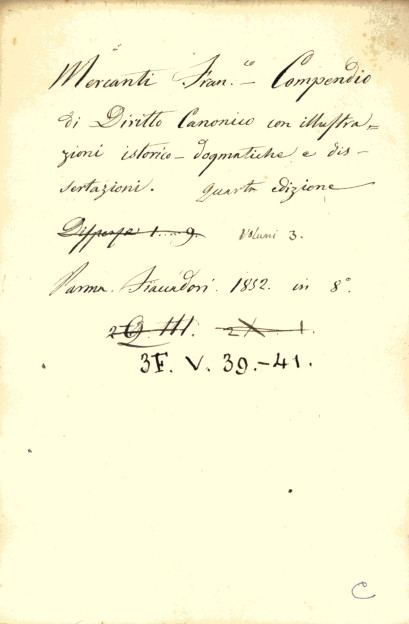 Mercanti Fran.co – Compendio
di Diritto Canonico con illustra=
zioni istorico-dogmatiche e dis-
sertazioni. quarta edizione
Dispense 1....9. Volumi 3.
Parma. Fiaccadori. 1852. in 8°.
2 Q. III. 2 X. 1.
3F. V. 39.-41.
C